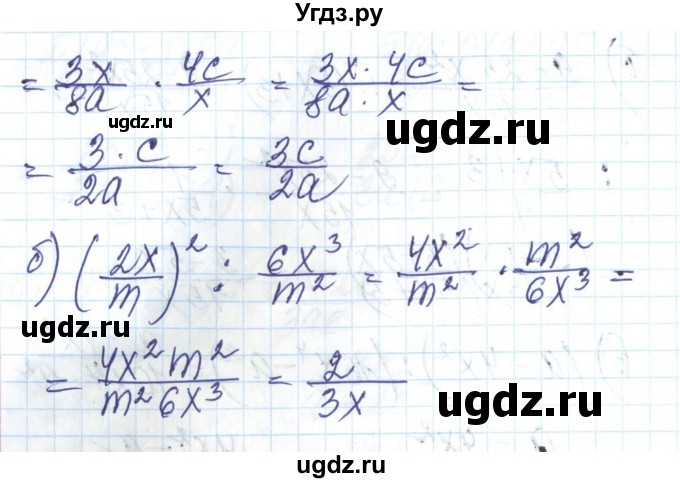 Угдз.ру
= 3x/8a · 4c/x = 3x · 4c/8a · x =
ugdz.ru
ugdz.ru
= 3 · c/2a = 3c/2a
ugdz.ru
б) (2x/m)² : 6x³/m² = 4x²/m² · m²/6x³ =
ugdz.ru
= 4x²m²/m²6x³ = 2/3x
ugdz.ru
ugdz.ru